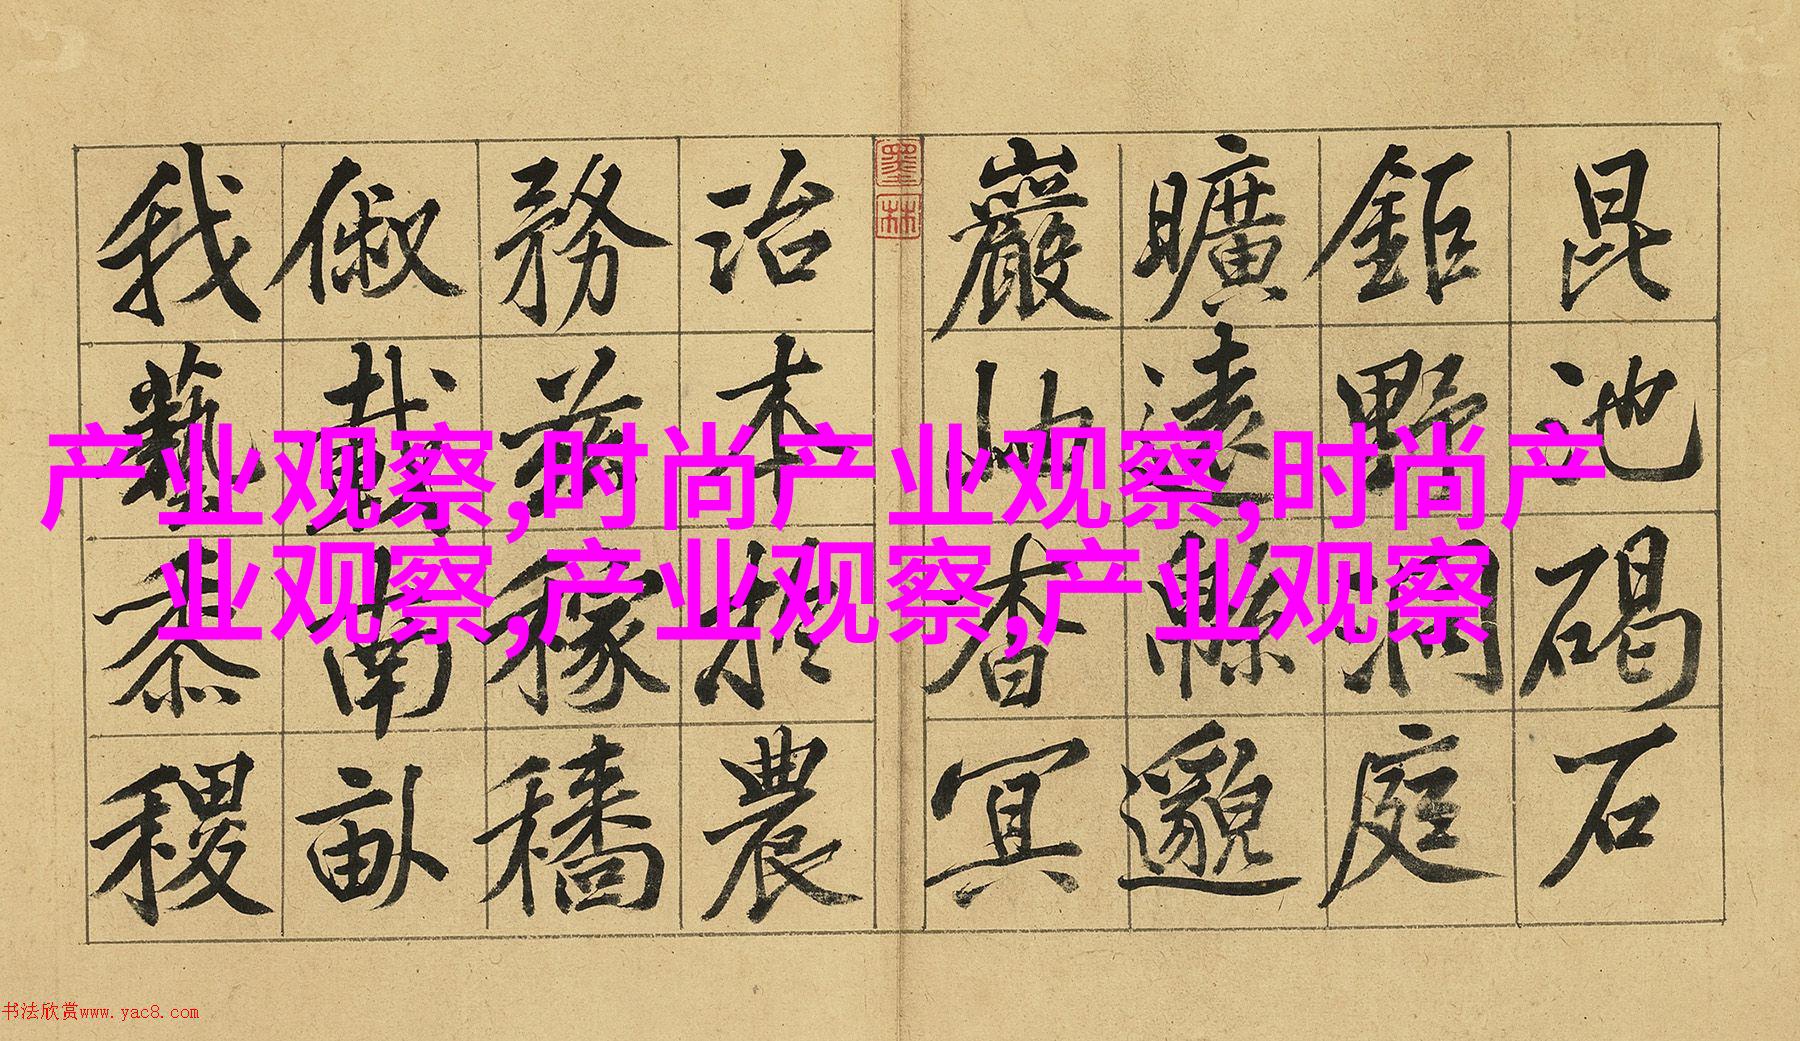 昆池碣石
鉅野洞庭
曠遠緜邈
巖岫杳冥
治本於農
務茲稼穡
俶載南畝
我藝黍稷
墨林
产业观察,时尚产业观察,时尚产
业观察,产业观察,产业观察
书法欣赏www.yac8.com